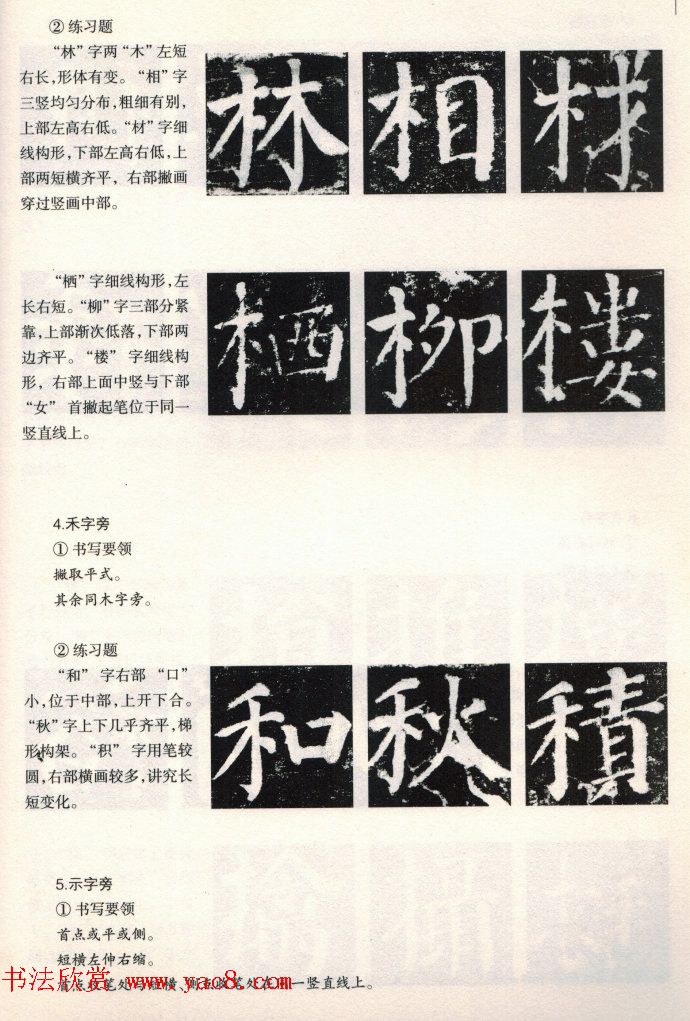 ② 练习题
“林”字两“木”左短
右长,形体有变。“相”字
三竖均匀分布,粗细有别,
上部左高右低。“材”字细
线构形,下部左高右低,上
部两短横齐平,右部撇画
穿过竖画中部。
林 相 材
“栖”字细线构形,左
长右短。“柳”字三部分紧
靠,上部渐次低落,下部两
边齐平。“楼”字细线构
形,右部上面中竖与下部
“女”首撇起笔位于同一
竖直线上。
栖 柳 楼
4.禾字旁
① 书写要领
撇取平式。
其余同木字旁。
② 练习题
“和”字右部“口”
小,位于中部,上开下合。
“秋”字上下几乎齐平,梯
形构架。“积”字用笔较
圆,右部横画较多,讲究长
短变化。
和 秋 積
5.示字旁
① 书写要领
首点或平或侧。
短横左伸右缩。
首点收笔处与短横、侧点收笔处在同一竖直线上。
书法欣赏 www.yac8.com